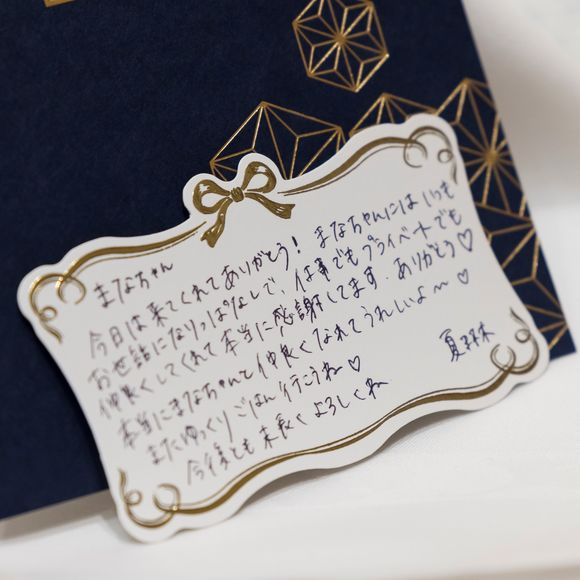 まなちゃん
今日は来てくれてありがとう! まなちゃんにはいつも
お世話になりっぱなしで、仕事でもプライベートでも
仲良くしてくれて本当に感謝してます。ありがとう♡
本当にまなちゃんと仲良くなれてうれしいよ〜♡
またゆっくりごはん行こうね♡
今後とも末長くよろしくね